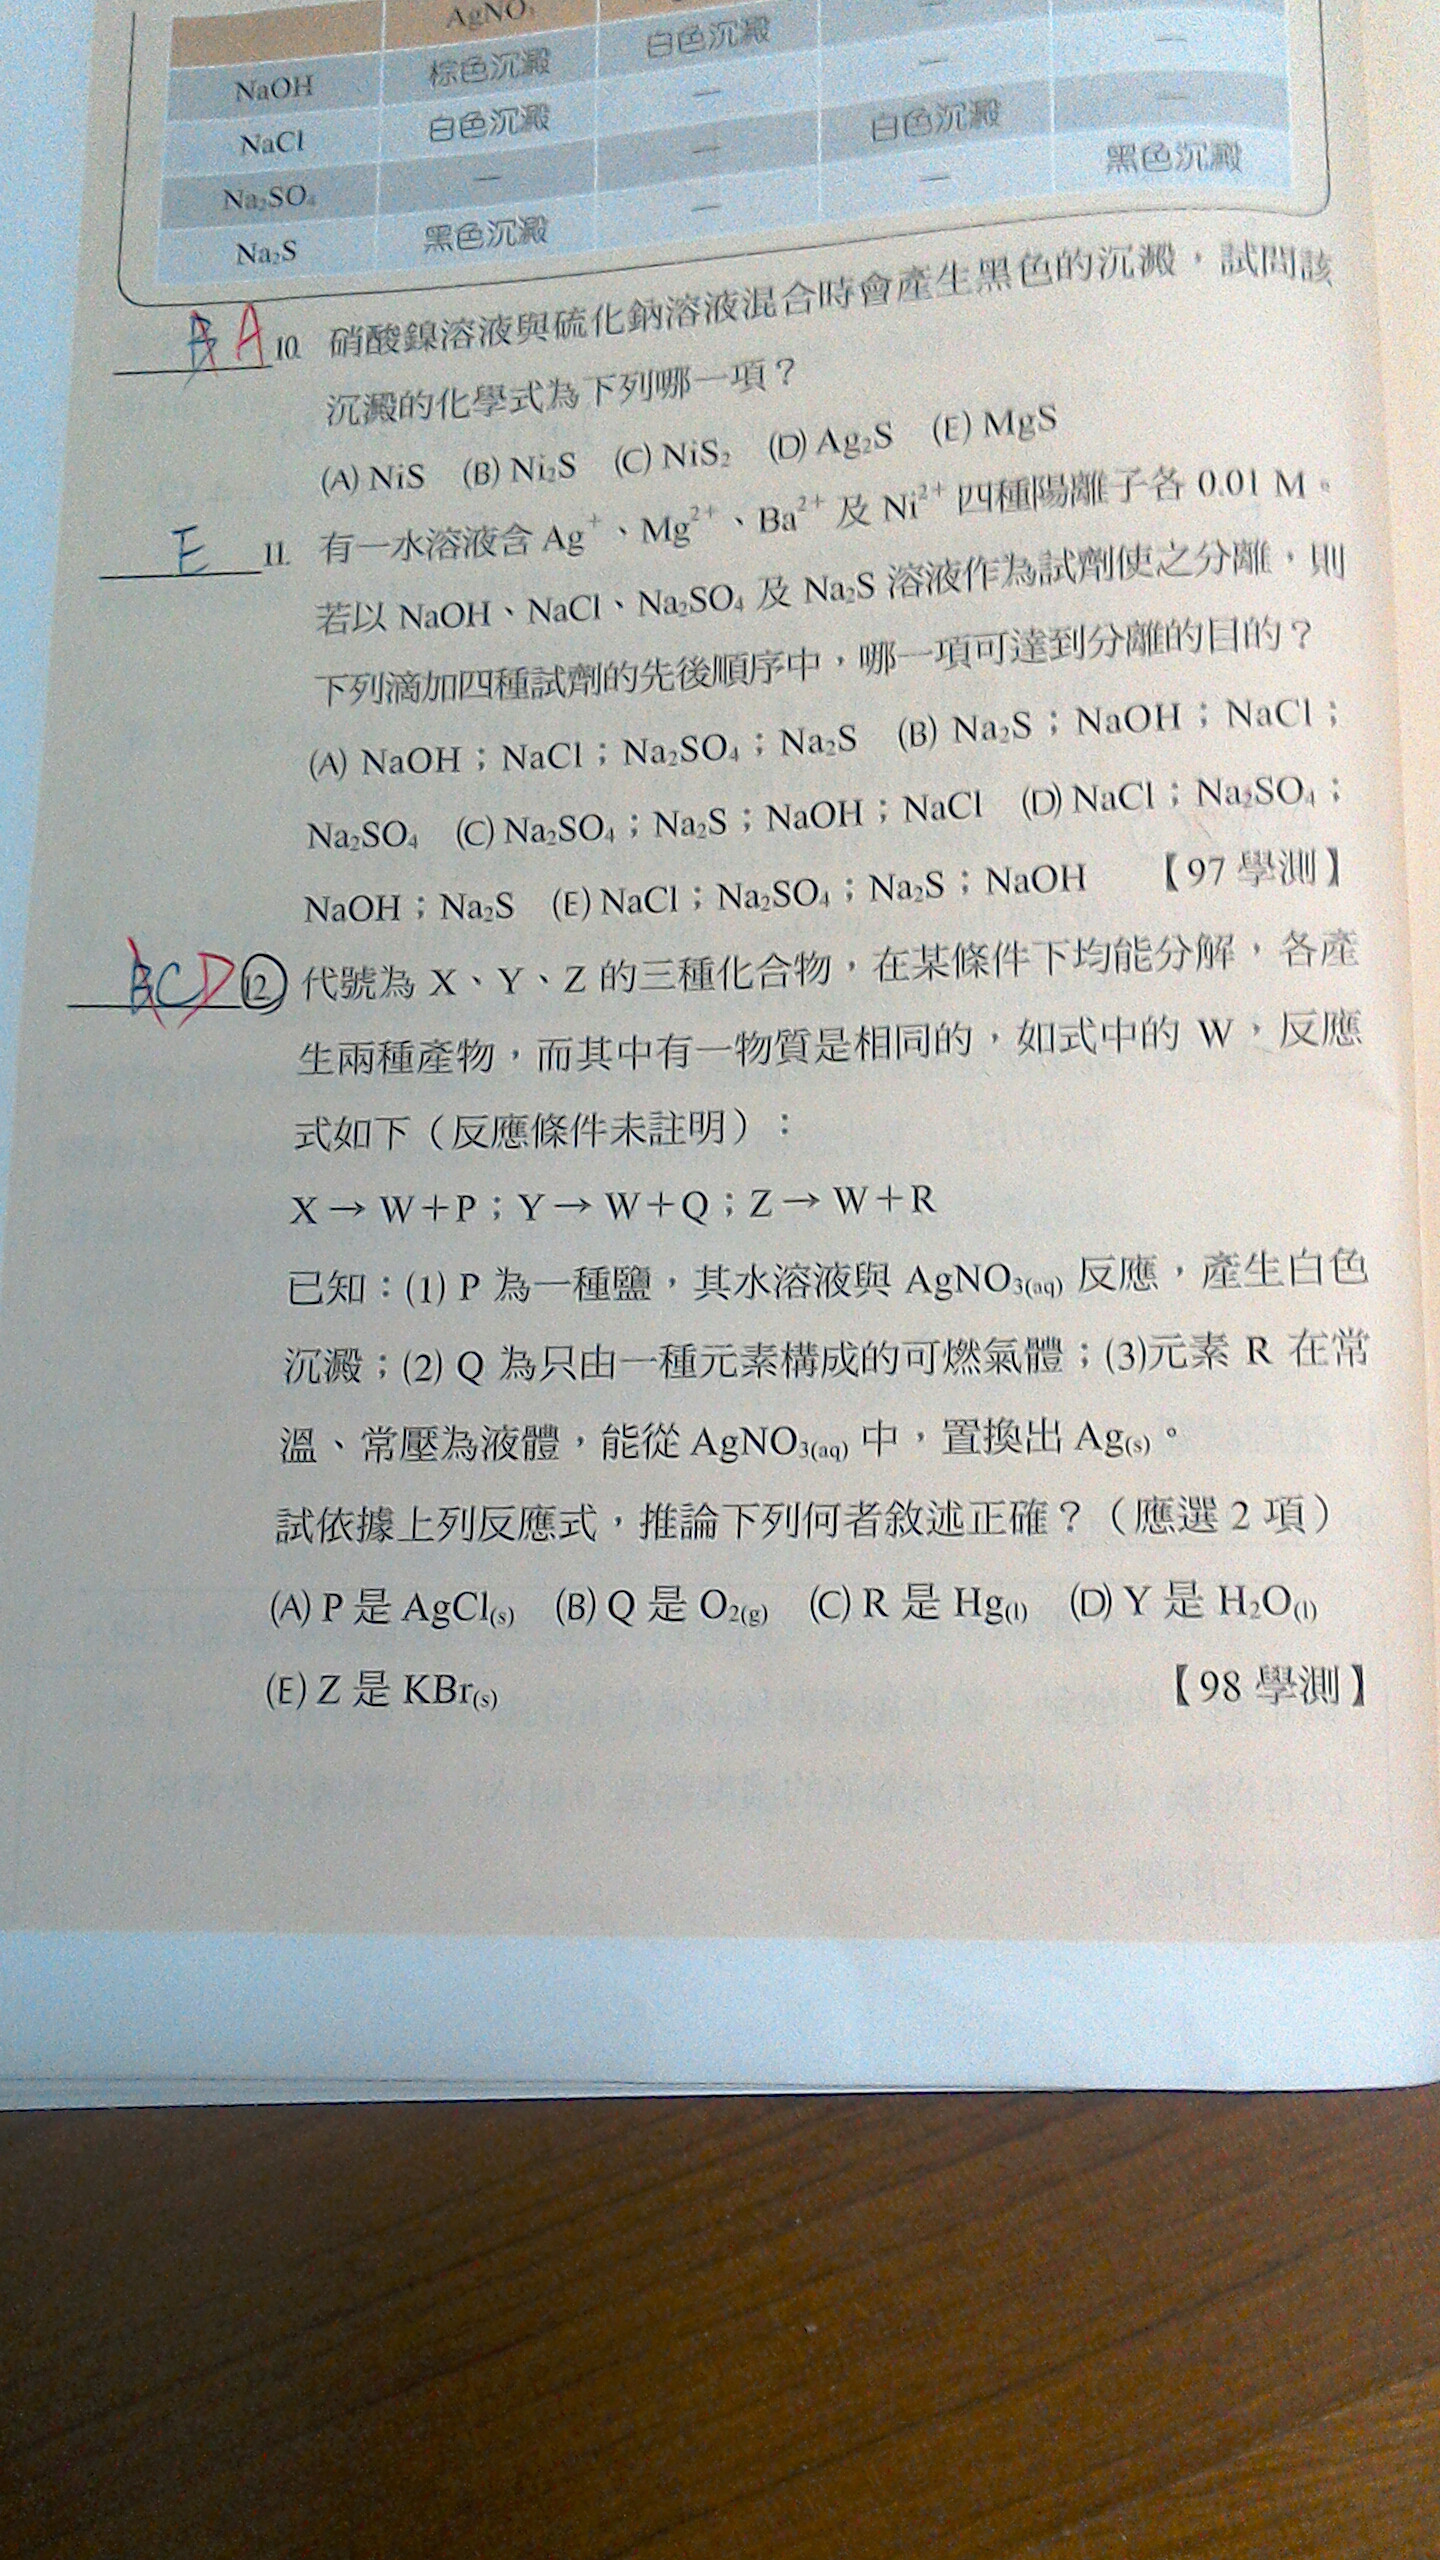 AgNO₃
NaOH 棕色沉澱 白色沉澱 — —
NaCl 白色沉澱 — — —
Na₂SO₄ — — 白色沉澱 —
Na₂S 黑色沉澱 — — 黑色沉澱
A 10. 硝酸鎳溶液與硫化鈉溶液混合時會產生黑色的沉澱，試問該
沉澱的化學式為下列哪一項？
(A) NiS (B) Ni₂S (C) NiS₂ (D) Ag₂S (E) MgS
E 11. 有一水溶液含 Ag⁺、Mg²⁺、Ba²⁺ 及 Ni²⁺ 四種陽離子各 0.01 M。
若以 NaOH、NaCl、Na₂SO₄ 及 Na₂S 溶液作為試劑使之分離，則
下列滴加四種試劑的先後順序中，哪一項可達到分離的目的？
(A) NaOH；NaCl；Na₂SO₄；Na₂S (B) Na₂S；NaOH；NaCl；
Na₂SO₄ (C) Na₂SO₄；Na₂S；NaOH；NaCl (D) NaCl；Na₂SO₄；
NaOH；Na₂S (E) NaCl；Na₂SO₄；Na₂S；NaOH 【97 學測】
BCD 12. 代號為 X、Y、Z 的三種化合物，在某條件下均能分解，各產
生兩種產物，而其中有一物質是相同的，如式中的 W，反應
式如下（反應條件未註明）：
X → W＋P；Y → W＋Q；Z → W＋R
已知：(1) P 為一種鹽，其水溶液與 AgNO₃(aq) 反應，產生白色
沉澱；(2) Q 為只由一種元素構成的可燃氣體；(3)元素 R 在常
溫、常壓為液體，能從 AgNO₃(aq) 中，置換出 Ag(s)。
試依據上列反應式，推論下列何者敘述正確？（應選 2 項）
(A) P 是 AgCl(s) (B) Q 是 O₂(g) (C) R 是 Hg(l) (D) Y 是 H₂O(l)
(E) Z 是 KBr(s) 【98 學測】